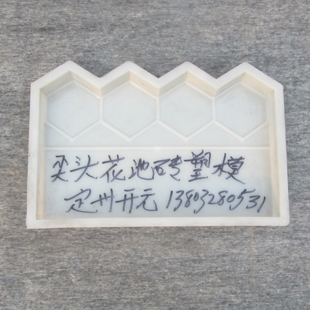 尖头花池砖塑模
定州开元 13803280531